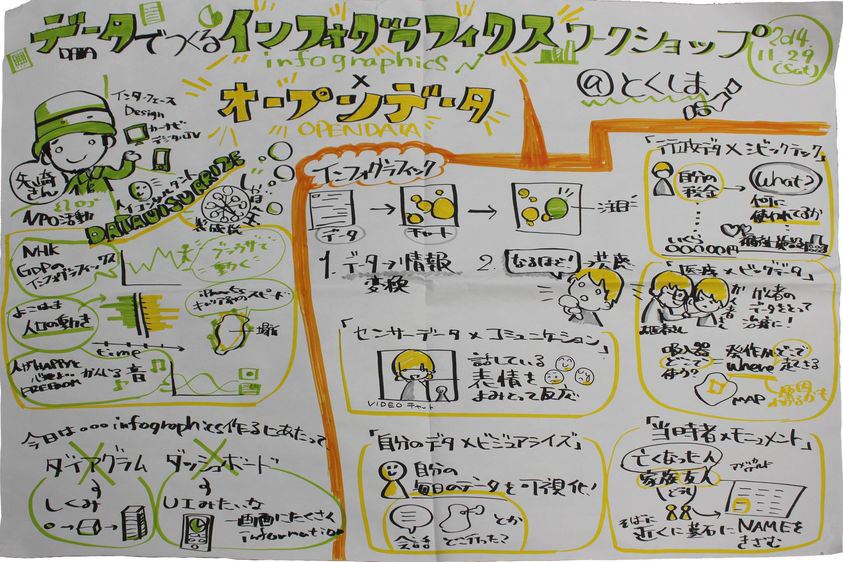 データでつくるインフォグラフィックスワークショップ
DATA
infographics
×
オープンデータ
OPENDATA
@とくしま
2014.
11.29
(Sat)
インターフェース
Design
カーナビ
デジタルTV
矢崎
さん
NPO活動
DATAVISUALIZE
NHK
GDPの
インフォグラフィックス
ブラウザで
動く
よこはま
人口の動き
time
場所
FREEDOM
かんじる音
今日は…infographics作るにあたって、
ダイアグラム
しくみ
ダッシュボード
UIみたいな
一画面にたくさん
information
インフォグラフィック
データ
チャート
注目
1. データ→情報
変換
2. なるほど!
共感
「センサーデータ×コミュニケーション」
VIDEOチャット
話している
表情を
よみとって反応
「自分のデータ×ビジュアライズ」
自分の
毎日のデータを可視化!
会話
どこ行った?
とか
「行政データ×シビックテック」
自分の
税金
What?
何に
使われてるか
いくら
○○○○○円
「医療×ビッグデータ」
患者の
データをとって
治療に!
お医者さん
吸入器
どこで
使う?
発作がどこで
Where
起きる
MAP
原因
わかるかも
「当時者×モニュメント」
亡くなった人
家族 友人
どうし
そばに
近くに墓石にNAMEを
きざむ